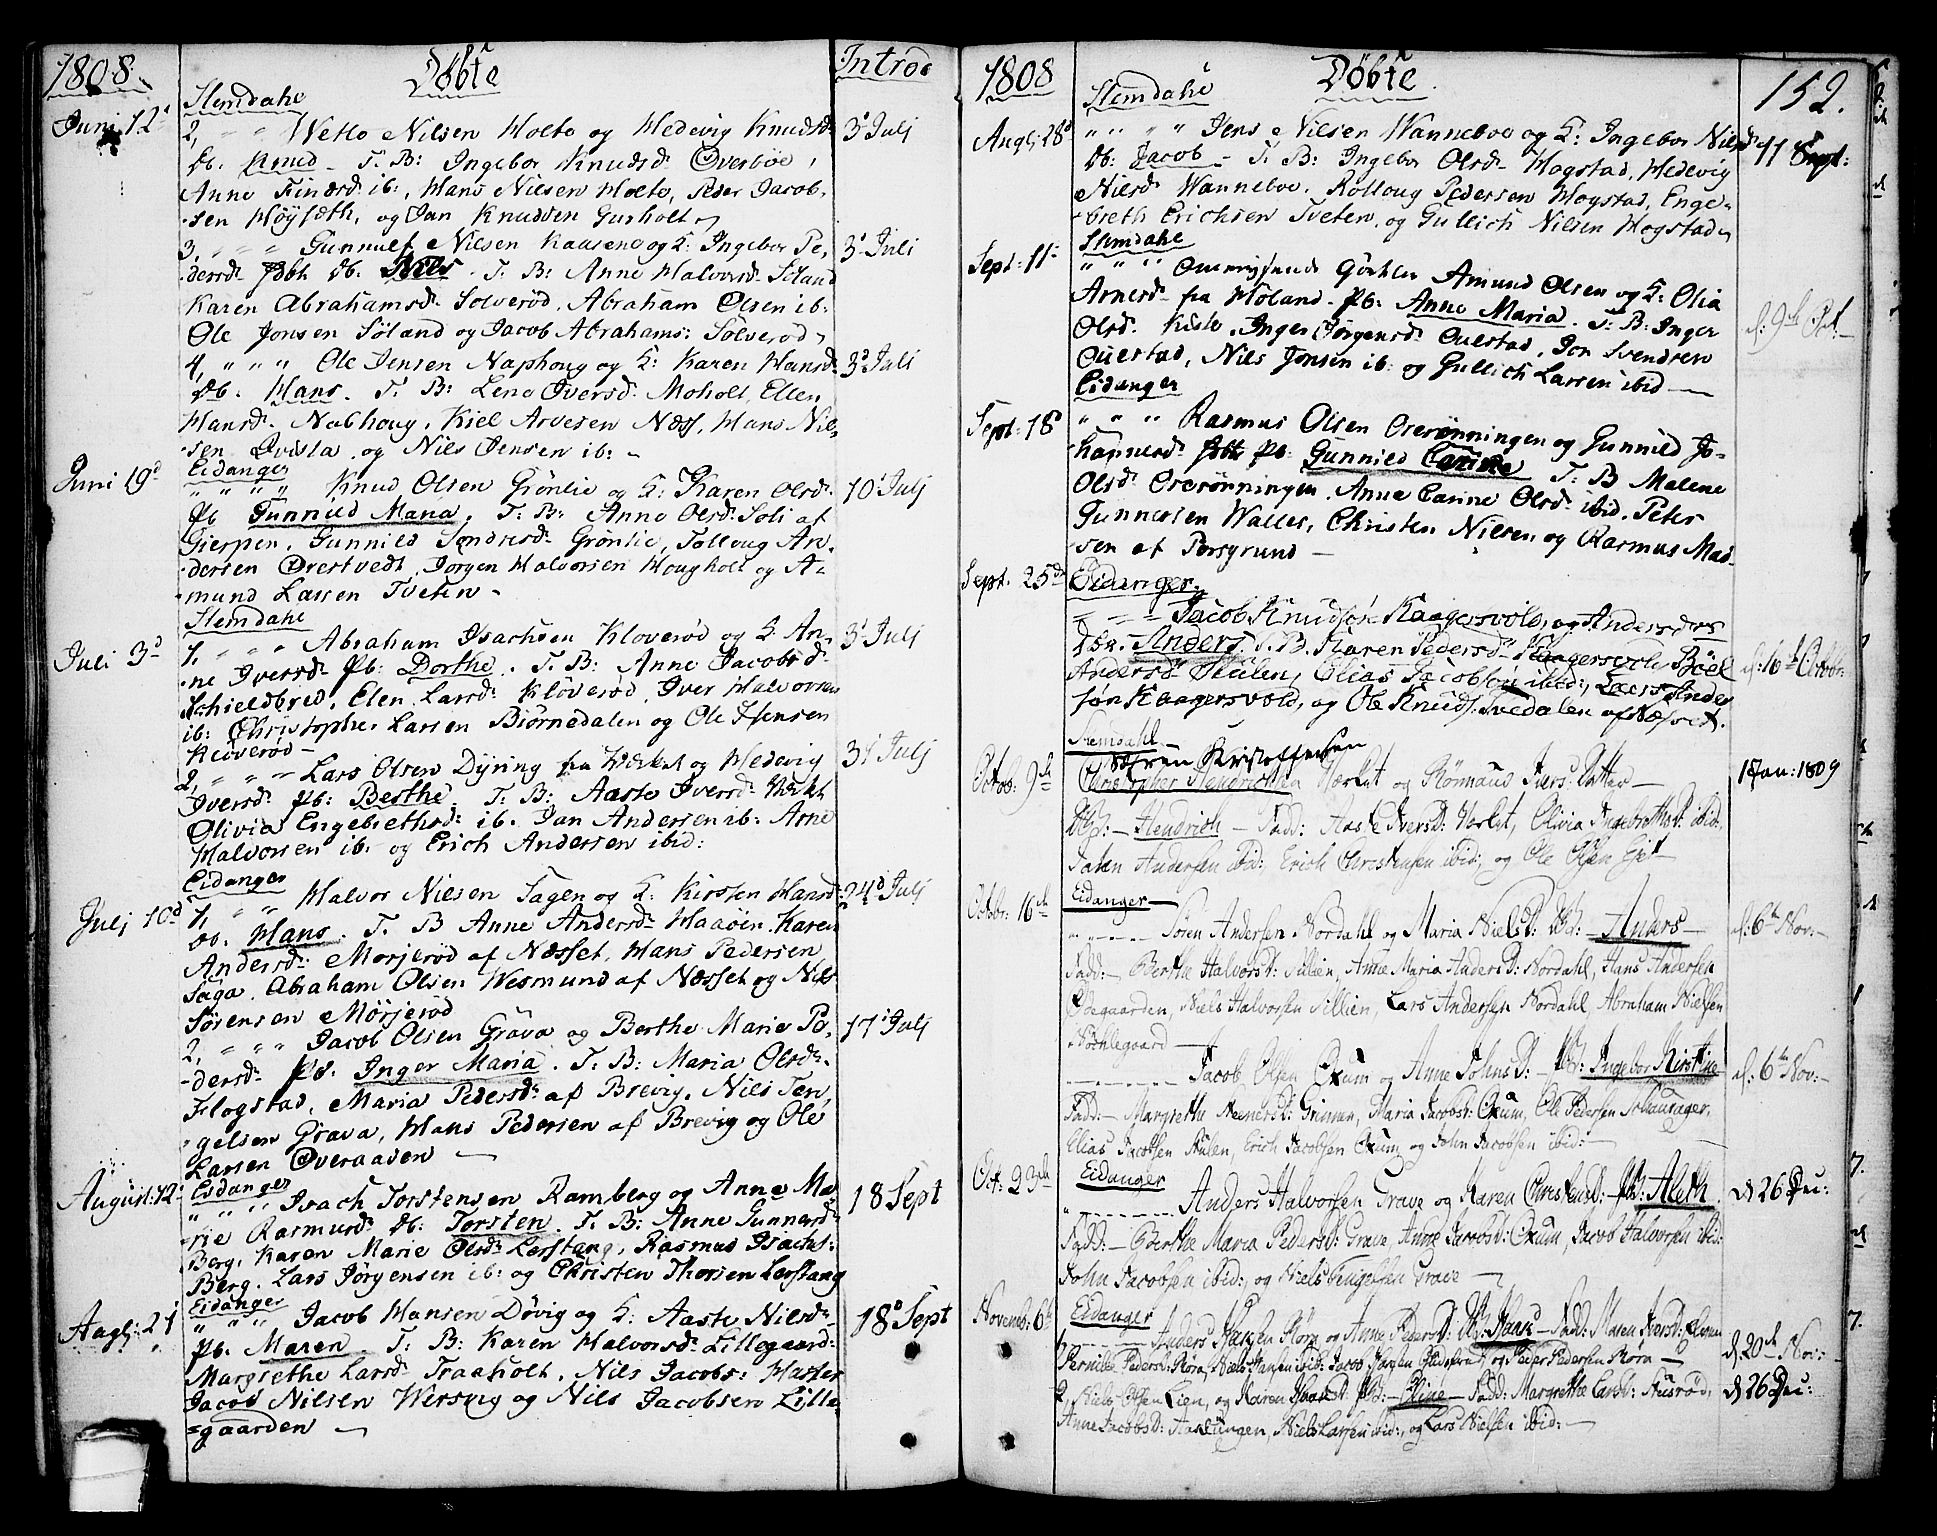 1808. Döbte Introd:
Slemdahl
Juni 12d 2, " " Wetlo Nilsen Holte og Hedevig Knudsd: 3d Julj
Db. Knud - T. B: Ingebor Knudsd: Overböe,
Anne Findsd: ib:, Hans Nilsen Holte, Peder Jacob,
-sen Höysæth, og Jan Knudsen Gurholt
3, " " Gunnulf Nilsen Kaasene og K: Ingebor Pe, 3d Juli
dersd: Db: Nils. T. B: Anne Halvorsd: Söland
Karen Abrahamsd: Solveröd, Abraham Olsen ib:
Ole Jonsen Söland og Jacob Abrahams: Solveröd
4, " " " Ole Jensen Naphoug og K: Karen Hansd: 3d Juli
Db. Hans. T. B: Lene Iversd: Moholt, Ellen
Hansd: Nabhoug, Kiel Arvesen Næss, Hans Nil,
sen Qvista, og Nils Jensen ib: -
Eidanger
Juni 19d " " " " Knud Olsen Grönlie og K: Karen Olsd: 10d Julj
Pb Gunnild Maria. T: B: Anne Olsd: Soli af
Gierpen, Gunnild Sondresd: Grönlie, Tolloug An,
dersen Örestvedt, Jörgen Halvorsen Hougholt og A,
mund Larsen Tveten -
Slemdahl
Juli 3d 1, " " " Abraham Isachsen Kloveröd og K An, 3d Julj
ne Iversd: Pb: Dorthe. T. B: Anne Jacobsd:
Schieldbred, Elen Larsd: Klöveröd, Iver Halvorsen
ib: Christopher Larsen Biörnedalen og Ole Hsensen
Klöveröd -
2, " " " Lars Olsen Dyring fra Værket og Hedevig 31d Julj
Iversd: Pb: Berthe. T. B: Aaste Iversd: Værket
Olivia Engebrethsd: ib. Jan Andersen ib: Arne
Halvorsen ib: og Erich Andersen ibid:
Eidanger
Julj 10d 1, " " Halvor Nilsen Sagen og K: Kirsten Hansd: 24d Julj
Db. Hans. T. B Anne Andersd: Haaöen, Karen
Andersd: Morjeröd af Næsset, Hans Pedersen
Saga, Abraham Olsen Wesmund af Næsset og Nils
Sörensen Mörjeröd
2, " " " Jacob Olsen Grava og Berthe Marie Pe, 17d Julj
-dersd: Pb. Inger Maria. T. B: Maria Olsd:
Flogstad, Maria Pedersd: af Brevig, Nils Ten,
gelsen Grava, Hans Pedersen af Brevig og Ole
Larsen Överaaden -
Eidanger
August: 12 " " " Isach Torstensen Ramberg og Anne Ma, 18 Sept
rie Rasmusd: Db: Torsten. T. B: Anne Gunnersd:
Berg, Karen Marie Olsd: Lerstang, Rasmus Isachs:
Berg, Lars Jörgensen ib: og Christen Thorsen Lerstang
Eidanger
Augl: 21 " " " Jacob Hansen Dövig og K: Aaste Nilsd: 18d Sept
Pb. Maren. T. B: Karen Halvorsd: Lillegaard:
Margrethe Larsd: Traaholt, Nils Jacobs:
Jacob Nilsen Wersvig og Nils Jacobsen Lille
=gaarden -
1808 Döbte 152.
Slemdahl
Augl: 28d " " " " Jens Nilsen Wanneboe og K: Ingebor Nilsd: 11 Sept:
Db: Jacob - T. B: Ingebor Olsd: Hogstad, Hedevig
Nilsd: Wanneboe, Rolloug Pedersen Hogstad, Enge,
breth Erichsen Tveten, og Gullich Nilsen Hogstad
Slemdahl
Sept: 11d " " " Amund Olsen og K: Olia
Arnesd: fra Höland. Pb: Anne Maria. T: B: Inger d: 9de Oct: -
Olsd: Kiste, Inger Jörgensd: Ouestad, Jon Svendsen
Ouestad, Nils Jonsen ib: og Gullich Larsen ibid -
Eidanger
Sept: 18d " " " Rasmus Olsen Örerönningen og Gunnild Jo,
hannesd: Pb: Gunnild Carine T: B Malene
Olsd: Örerönningen, Anne Carine Olsd: ibid, Peter
Gunnersen Waller, Christen Nilsen, og Rasmus Mad,
sen af Porsgrund -
Sept: 25de Eidanger,
Jacob Knudsön Kaagersvold, og Andersdes
Db. Anders. T. B. Karen Pedersd: Kaagersvold, Böel d: 16de Octobr:
Andersd: Skulen, Elias Jacobsen ibid:, Lars Ander
sön Kaagersvold, og Ole Knuds: Svedalen af Næsset.
Slemdahl
Sören Kristoffersen
Octob: 9de Christopher Hendrichsen Værket og Römaus Iversdatter - 1 Jan: 1809
DB: - Hendrich - Fadd: Aaste Iversd: Værket, Olivia Ingebrethsd: ibid:
Johen Andersen ibid:, Erich Christensen ibid:, og Ole Olsen Eiet
Eidanger -
Octobr: 16de Sören Andersen Nordahl og Maria Nielsd: DB: - Anders - d: 6te Nov: -
Fadd: - Berthe Halvorsd: Sillien, Anne Maria Andersd: Nordahl, Hans Andersen
Ödegaarden, Niels Halvorsen Sillien, Lars Andersen Nordahl, Abraham Nielsen
Nöchlegaard -
Jacob Olsen Oxum og Anne Johnsd: - PB: Ingebor Kirstine d: 6te Nov: -
Fadd: - Margrethe Steenersd: Grinnen, Maria Jacobsd: Oxum, Ole Pedersen Schaurager,
Elias Jacobsen Skulen, Erich Jacobsen Oxum og John Jacobsen ibid: -
Oct: 23de Eidanger
Anders Halvorsen Grave og Karen Christensd: - PB: Aleth. d: 26 Dec:
Fadd: - Berthe Maria Pedersd: Grave, Anne Jacobsd: Oxum, Jacob Halvorsen ibid:
John Jacobsen ibid:, og Niels Tengelsen Grave -
Novemb: 6te Eidanger
1 Anders Hansen Röra og Anne Pedersd: DB: Hans - Fadd: Maren Iversd: d: 20de Nov: -
Pernille Pedersd: Röra, Niels Hansen ibid: Jacob Hansen og Peder Pedersen Röra -
2, Niels Olsen Lien, og Karen PB: - Stine - Fadd: Margrethe Larsd: d: 26 Dec:
Anne Jacobsd: Haslungen, Niels Larsen ibid:, og Lars Nielsen ibid: -